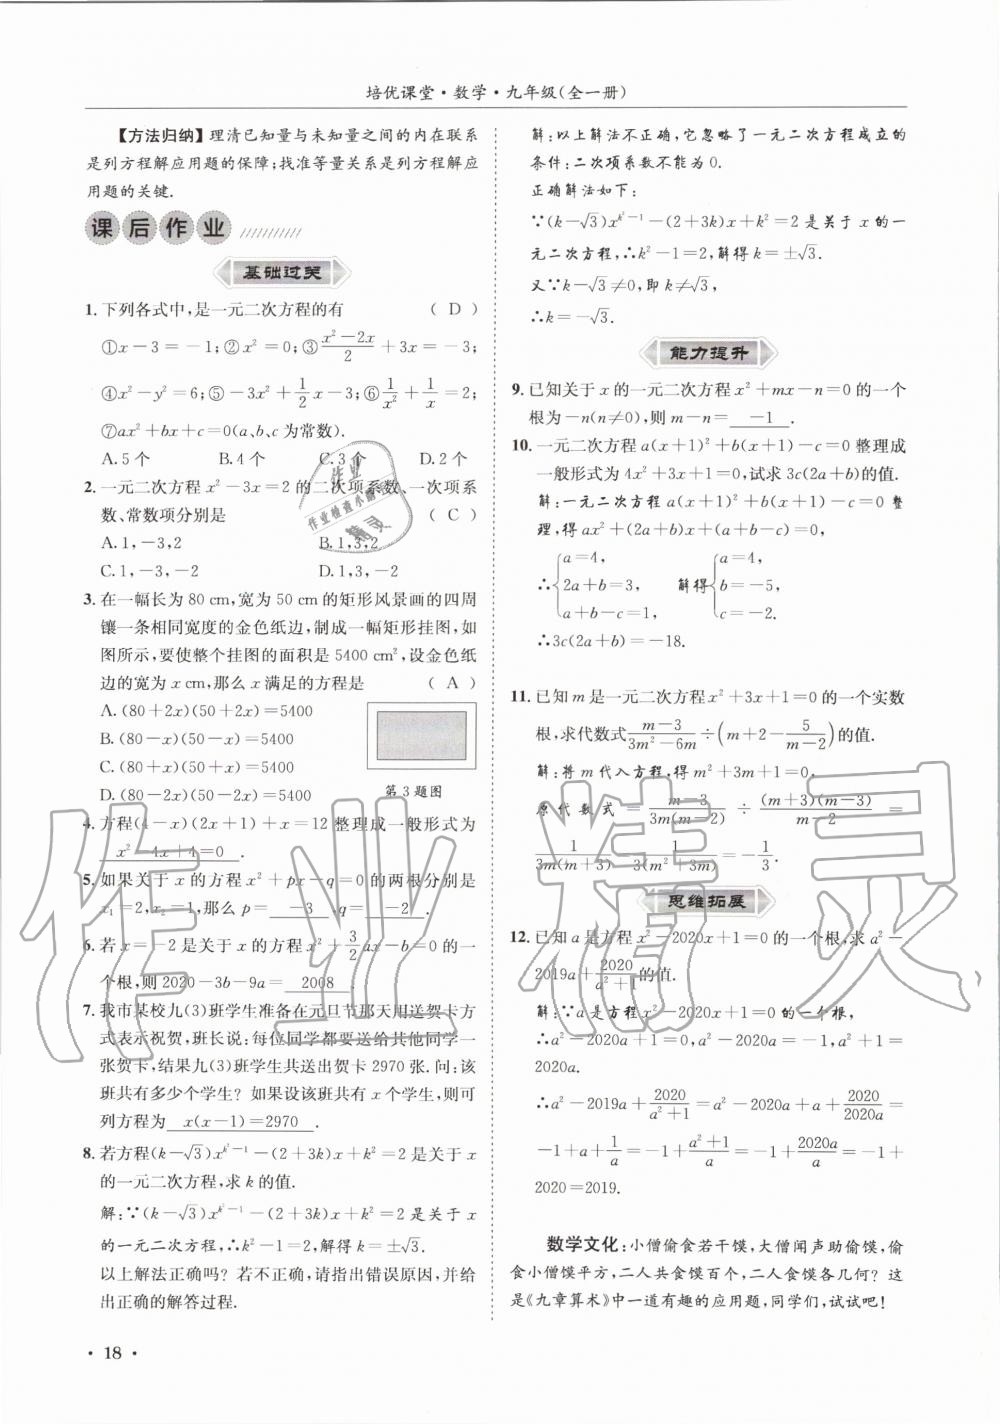 培优课堂·数学·九年级(全一册)
【方法归纳】理清已知量与未知量之间的内在联系
是列方程解应用题的保障;找准等量关系是列方程解应
用题的关键.
课后作业
基础过关
1. 下列各式中,是一元二次方程的有 ( D )
①x-3=-1;②x²=0;③(x²-2x)/2+3x=-3;
④x²-y²=6;⑤-3x²+1/2x-3;⑥1/x²+1/x=2;
⑦ax²+bx+c=0(a、b、c为常数).
A. 5个 B. 4个 C. 3个 D. 2个
2. 一元二次方程 x²-3x=2的二次项系数、一次项系
数、常数项分别是 ( C )
A. 1,-3,2 B. 1,3,2
C. 1,-3,-2 D. 1,3,-2
3. 在一幅长为80 cm,宽为50 cm的矩形风景画的四周
镶一条相同宽度的金色纸边,制成一幅矩形挂图,如
图所示,要使整个挂图的面积是5400 cm²,设金色纸
边的宽为x cm,那么x满足的方程是 ( A )
A. (80+2x)(50+2x)=5400
B. (80-x)(50-x)=5400
C. (80+x)(50+x)=5400
D. (80-2x)(50-2x)=5400
第3题图
4. 方程(4-x)(2x+1)+x=12整理成一般形式为
x²-4x+4=0 .
5. 如果关于x的方程x²+px-q=0的两根分别是
x₁=2,x₂=1,那么p= -3 ,q= -2 .
6. 若x=-2是关于x的方程x²+3/2ax-b=0的一
个根,则2020-3b-9a= 2008 .
7. 我市某校九(3)班学生准备在元旦节那天用送贺卡方
式表示祝贺,班长说:每位同学都要送给其他同学一
张贺卡,结果九(3)班学生共送出贺卡2970张.问:该
班共有多少个学生? 如果设该班共有x个学生,则可
列方程为 x(x-1)=2970 .
8. 若方程(k-√3)x^(k²-1)-(2+3k)x+k²=2是关于x
的一元二次方程,求k的值.
解:∵(k-√3)x^(k²-1)-(2+3k)x+k²=2是关于x
的一元二次方程,∴k²-1=2,解得k=±√3.
以上解法正确吗? 若不正确,请指出错误原因,并给
出正确的解答过程.
· 18 ·
解:以上解法不正确,它忽略了一元二次方程成立的
条件:二次项系数不能为0.
正确解法如下:
∵(k-√3)x^(k²-1)-(2+3k)x+k²=2是关于x的一
元二次方程,∴k²-1=2,解得k=±√3.
又∵k-√3≠0,即k≠√3,
∴k=-√3.
能力提升
9. 已知关于x的一元二次方程x²+mx-n=0的一个
根为-n(n≠0),则m-n= -1 .
10. 一元二次方程a(x+1)²+b(x+1)-c=0整理成
一般形式为4x²+3x+1=0,试求3c(2a+b)的值.
解:一元二次方程a(x+1)²+b(x+1)-c=0整
理,得ax²+(2a+b)x+(a+b-c)=0,
∴{a=4, 2a+b=3, a+b-c=1, 解得{a=4, b=-5, c=-2.
∴3c(2a+b)=-18.
11. 已知m是一元二次方程x²+3x+1=0的一个实数
根,求代数式(m-3)/(3m²-6m)÷(m+2-5/(m-2))的值.
解:将m代入方程,得m²+3m+1=0.
原代数式=(m-3)/(3m(m-2))÷((m+3)(m-3))/(m-2)=
1/(3m(m+3))=1/(3(m²+3m))=-1/3.
思维拓展
12. 已知a是方程x²-2020x+1=0的一个根,求a²-
2019a+2020/(a²+1)的值.
解:∵a是方程x²-2020x+1=0的一个根,
∴a²-2020a+1=0,a²-2020a=-1,a²+1=
2020a.
∴a²-2019a+2020/(a²+1)=a²-2020a+a+2020/2020a=
-1+a+1/a=-1+(a²+1)/a=-1+2020a/a=-1+
2020=2019.
数学文化:小僧偷食若干馍,大僧闻声助偷馍,偷
食小僧馍平方,二人共食馍百个,二人食馍各几何? 这
是《九章算术》中一道有趣的应用题,同学们,试试吧!
作业精灵
作业
作业检查小助手
精灵